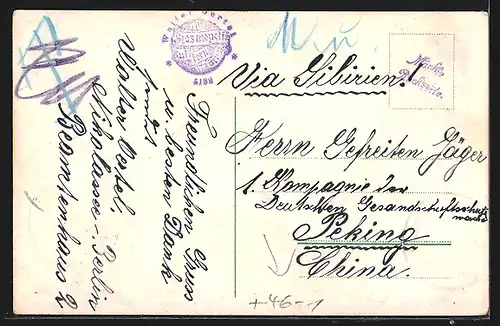 Walter Oertel
Kosmopolit
5182
Marke
Rückseite.
Via Sibirien!
Herrn Gefreiten Jäger
1. Kompagnie der
Deutschen Gesandschaftsschutz
wache
Peking
China.
Freundlichen Gruss
u. besten Dank
sendet
Walter Oertel,
Nikolassee - Berlin
Beamtenhaus 2
+46-1